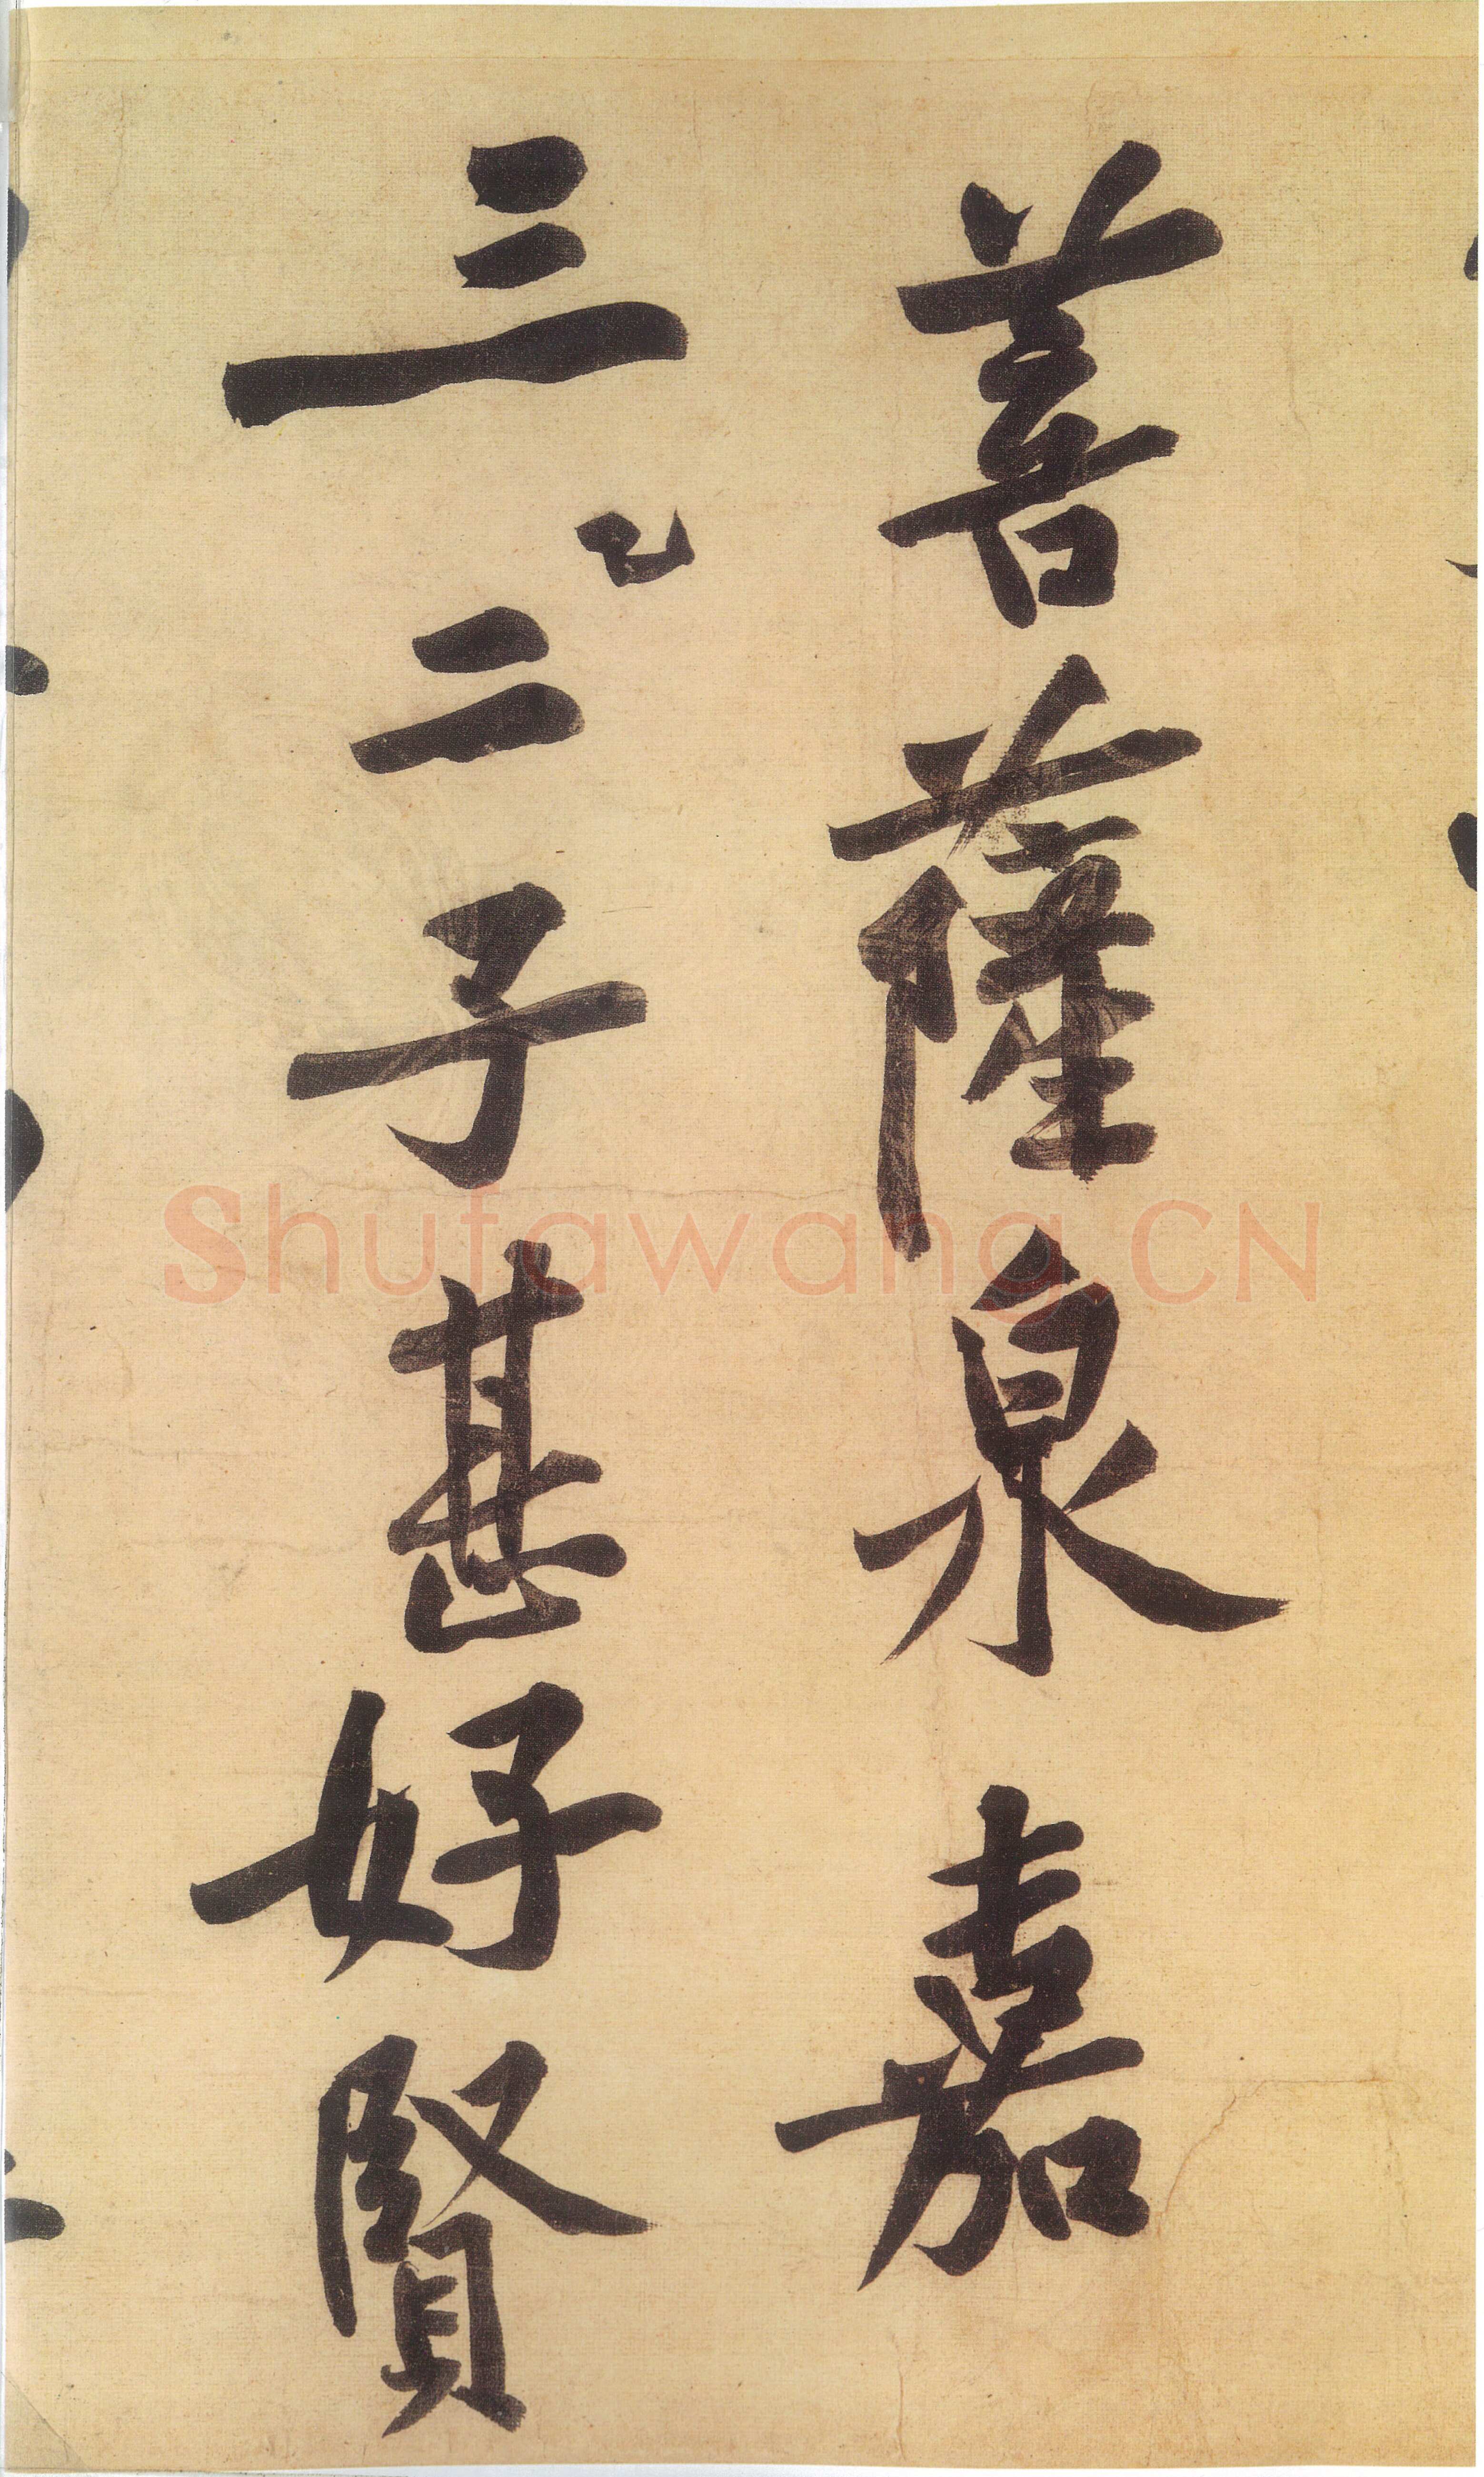 菩薩泉嘉
三二子甚好賢
Shufawang.CN